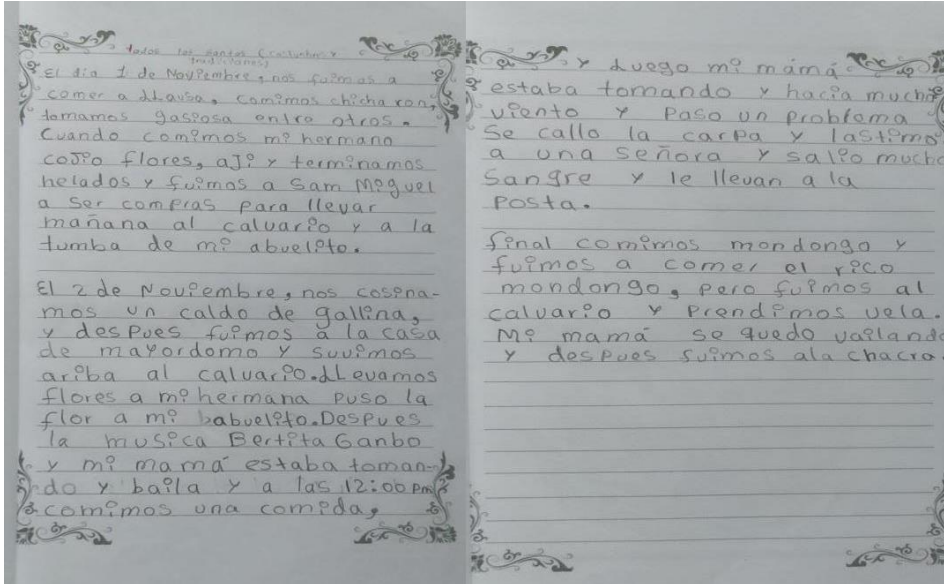 todos los santos (costumbres y
tradiciones)
El dia 1 de Noviembre, nos fuimos a
comer a LLausa, comimos chicharon,
tomamos gasiosa entro otros.
Cuando comimos mi hermano
cojio flores, aji y terminamos
helados y fuimos a Sam Miguel
a ser compras para llevar
mañana al calvario y a la
tumba de mi abuelito.
El 2 de Noviembre, nos cosina-
mos un caldo de gallina,
y despues fuimos a la casa
de mayordomo y suvimos
ariba al calvario. LLevamos
flores a mi hermana puso la
flor a mi babuelito. Despues
la musica Bertita Ganbo
y mi mamá estaba toman-
do y baila y a las 12:00 pm
comimos una comida,
y Luego mi mamá
estaba tomando y hacia mucho
viento y Paso un problema
Se callo la carpa y lastimo
a una señora y salio mucho
Sangre y le llevan a la
posta.
final comimos mondongo y
fuimos a comer el rico
mondongo, pero fuimos al
calvario y Prendimos vela.
Mi mamá se quedo vailando
y despues fuimos ala chacra.